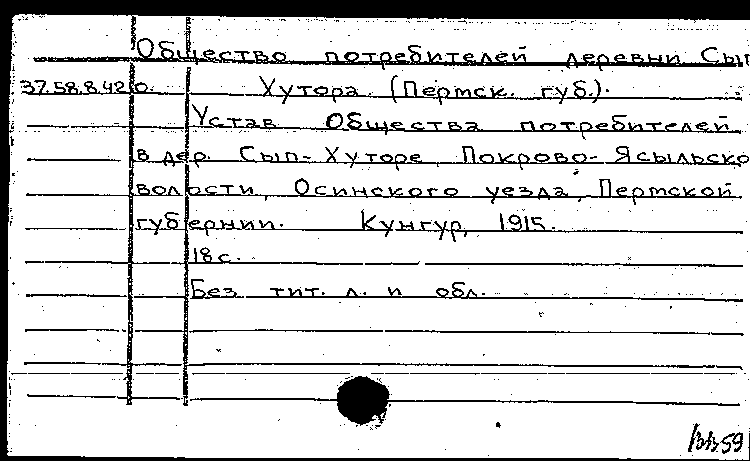 Общество потребителей деревни Сып
37.58.8.420. Хутора (Пермск. губ.).
Устав Общества потребителей
в дер. Сып-Хуторе, Покрово-Ясыльско
волости, Осинского уезда, Пермской
губернии. Кунгур, 1915.
18 с.
Без тит. л. и обл.
59